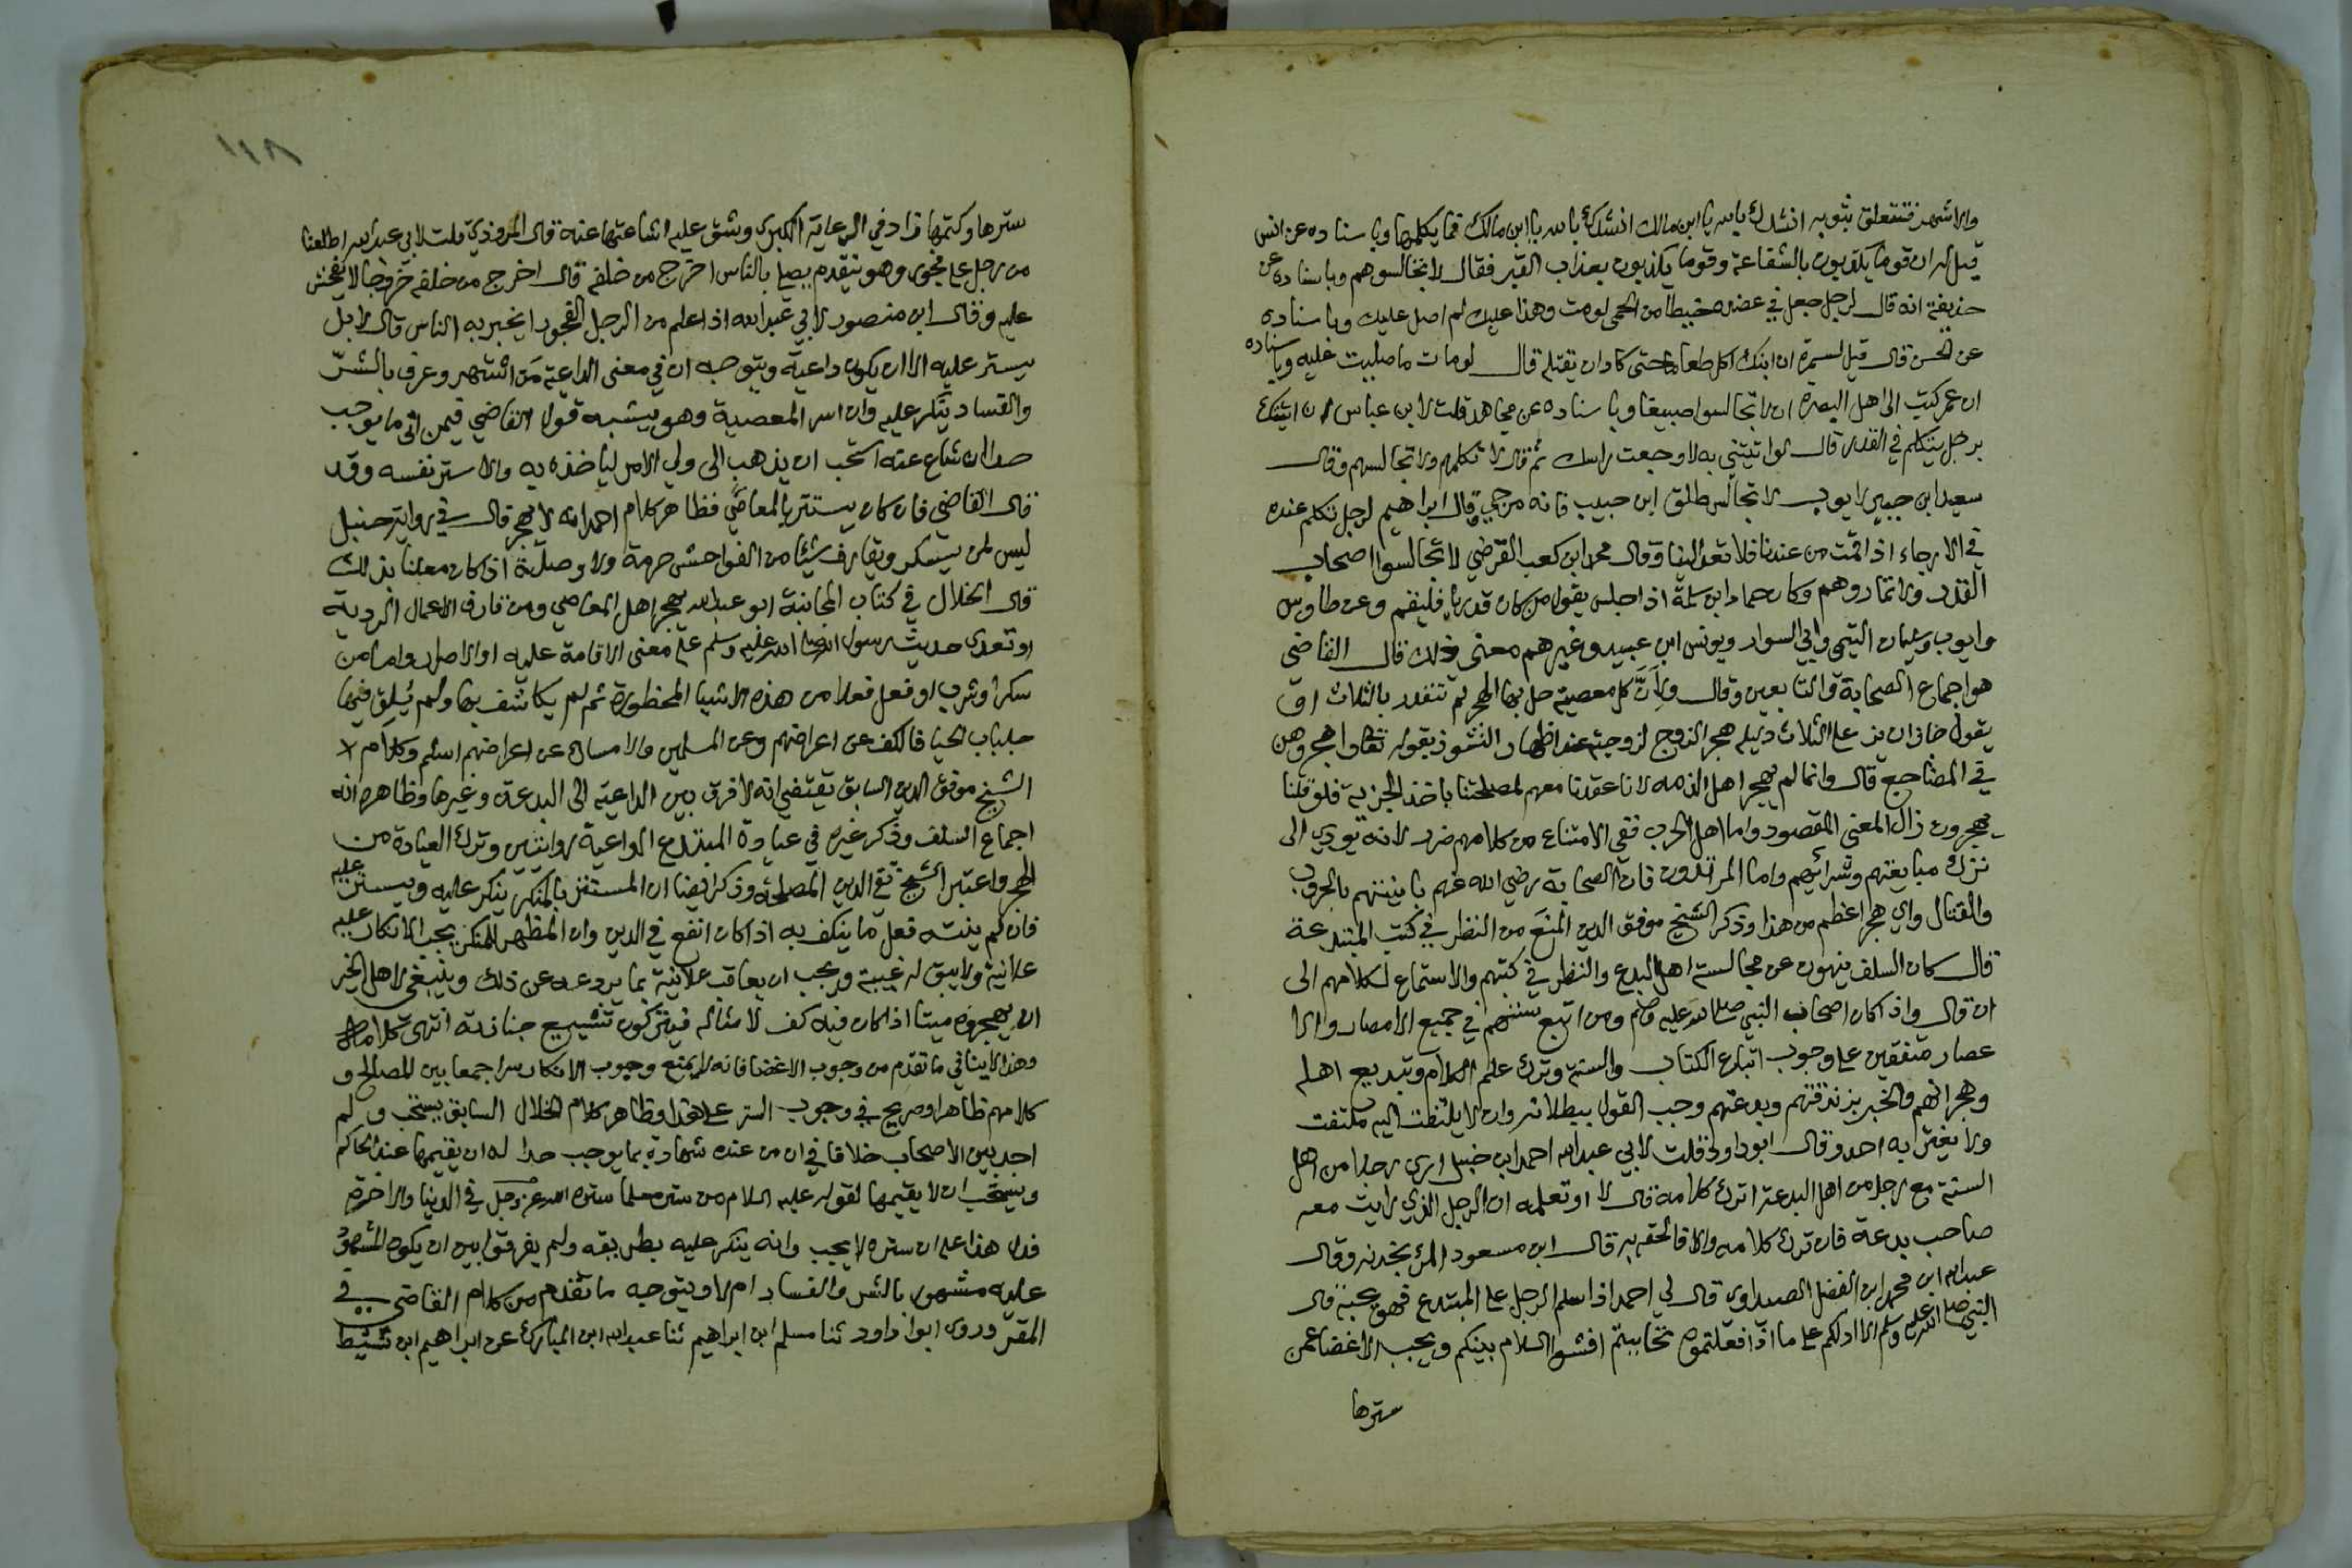 والاشهد فتتعلق بثوبه انشدك بالله يا ابن مالك انشدك بالله يا ابن مالك فما يكلمها وباسناده عن انس
قيل له ان قوما يكذبون بالشفاعة وقوما يكذبون بعذاب القبر فقال لا تجالسوهم وباسناده عن
حذيفة انه قال لرجل جعل في عضده خيطا من الحمى لو مت وهذا عليك لم اصل عليك وباسناده
عن الحسن قال قيل لسمرة ان ابنك اكل طعاما حتى كاد ان يقتله قال لو مات ما صليت عليه وباسناده
ان عمر كتب الى اهل البصرة ان لا تجالسوا صبيغا وباسناده عن مجاهد قلت لابن عباس ان اتيتك
برجل يتكلم في القدر قال لو اتيتني به لاوجعت راسك ثم قال لا تكلمهم ولا تجالسهم وقال
سعيد ابن جبير لايوب لا تجالس طلق ابن حبيب فانه مرجي وقال ابراهيم لرجل تكلم عنده
في الارجاء اذا قمت من عندنا فلا تعد الينا وقال محمد ابن كعب القرضي لا تجالسوا اصحاب
القدر ولا تماروهم وكان حماد ابن سلمة اذا جلس يقول من كان قدريا فليقم وعن طاوس
وايوب وسليمان التيمي وابي السوار ويونس ابن عبيد وغيرهم معنى ذلك قال القاضي
هو اجماع الصحابة والتابعين وقال ولأنّ كل معصية حل بها الهجر لم تتقدر بالثلاث
يقول جاز ان يزيد على الثلاث دليله هجر الزوج لزوجته عند اظهار النشوز بقوله تعالى واهجروهن
في المضاجع قال وانما لم يهجر اهل الذمه لانا عقدنا معهم لمصلحتنا باخذ الجزية فلو قلنا
يهجرون زال المعنى المقصود واما اهل الحرب ففي الامتناع من كلامهم ضرر لانه يؤدي الى
ترك مبايعتهم وشرائهم واما المرتدون فان الصحابة رضي الله عنهم باينتهم بالحروب
والقتال واي هجر اعظم من هذا وذكر الشيخ موفق الدين المنع من النظر في كتب المبتدعة
قال كان السلف ينهون عن مجالسة اهل البدع والنظر في كتبهم والاستماع لكلامهم الى
ان قال واذا كان اصحاب النبي صلى الله عليه وسلم ومن اتبع سنتهم في جميع الامصار والا
عصار متفقين على وجوب اتباع الكتاب والسنة وترك علم الكلام وتبديع اهله
وهجرانهم والخبر بزندقتهم وبدعتهم وجب القول ببطلانه وان لا يلتفت اليه ملتفت
ولا يغتر به احد وقال ابو داود قلت لابي عبدالله احمد ابن حنبل ارى رجلا من اهل
السنة مع رجل من اهل البدعة اترك كلامه قال لا او تعلمه ان الرجل الذي رايت معه
صاحب بدعة فان ترك كلامه والا فالحقه به قال ابن مسعود المرء بخدنه وقال
عبدالله ابن محمد ابن الفضل الصيداوي قال لي احمد اذا سلم الرجل على المبتدع فهو يحبه قال
النبي صلى الله عليه وسلم الا ادلكم على ما اذا فعلتموه تحاببتم افشوا السلام بينكم ويجب الاغضا عمن
سترها
١١٨
سترها وكتمها زاد في الرعاية الكبرى وشق عليه اشاعتها عنه قال المروذي قلت لابي عبدالله اطلعنا
من رجل على فجور وهو يتقدم يصلي بالناس اخرج من خلفه قال اخرج من خلفه خروجا لا تفحش
عليه وقال ابن منصور لابي عبدالله اذا علم من الرجل الفجور ايخبر به الناس قال لا بل
يستر عليه الا ان يكون داعية ويتوجه ان في معنى الداعية من اشتهر وعرف بالشرّ
والفساد ينكر عليه وان اسر المعصية وهو يشبه قول القاضي فيمن اتى ما يوجب
حدا ان شاع عنه استحب ان يذهب الى ولي الامر لياخذه به والا ستر نفسه وقد
قال القاضي فان كان يستتر بالمعاصي فظاهر كلام احمد انه لا يهجر قال في رواية حنبل
ليس لمن يسكر ويقارف شيئا من الفواحش حرمة ولا وصلة اذا كان معلنا بذلك
قال الخلال في كتاب المجانبة ابو عبدالله يهجر اهل المعاصي ومن قارف الاعمال الردية
او تعدى حديث رسول الله صلى الله عليه وسلم على معنى الاقامة عليه او الاصرار واما من
سكر او شرب او فعل فعلا من هذه الاشيا المحظورة ثم لم يكاشف بها ولم يلق فيها
جلباب الحيا فالكف عن اعراضهم وعن المسلمين والامساك عن اعراضهم اسلم وكلام
الشيخ موفق الدين السابق يقتضي انه لا فرق بين الداعية الى البدعة وغيرها وظاهره انه
اجماع السلف وذكر غيره في عيادة المبتدع الداعية روايتين وترك العيادة من
الهجر واعتبر الشيخ تقي الدين المصلحة وذكر ايضا ان المستتر بالمنكر ينكر عليه ويستر عليه
فان لم ينته فعل ما ينكف به اذا كان انفع في الدين وان المظهر للمنكر يجب الانكار عليه
علانية ولا يبق له غيبة ويجب ان يعاقب علانية بما يردعه عن ذلك وينبغي لاهل الخير
ان يهجروه ميتا اذا كان فيه كف لامثاله فيتركون تشييع جنازته انتهى كلامه
وهذا لا ينافي ما تقدم من وجوب الاغضا فانه لا يمنع وجوب الانكار سرا جمعا بين المصالح و
كلامهم ظاهر او صريح في وجوب الستر على هذا وظاهر كلام الخلال السابق يستحب ولم
اجد بين الاصحاب خلافا في ان من عنده شهادة بما يوجب حدا له ان يقيمها عند الحاكم
ويستحب ان لا يقيمها لقوله عليه السلام من ستر مسلما ستره الله عز وجل في الدنيا والاخرة
فدل هذا على ان ستره لا يجب وانه ينكر عليه بطريقه ولم يفرقوا بين ان يكون المشهود
عليه مشهورا بالشر والفساد ام لا ويتوجه ما تقدم من كلام القاضي في
المقرّ وروى ابوا داود ثنا مسلم ابن ابراهيم ثنا عبدالله ابن المبارك عن ابراهيم ابن نشيط